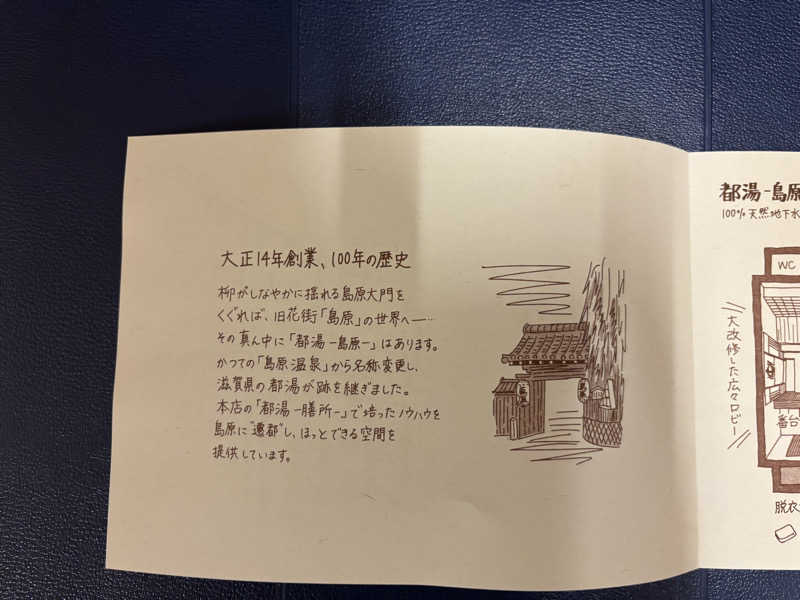 大正14年創業、100年の歴史
柳がしなやかに揺れる島原大門を
くぐれば、旧花街「島原」の世界へ……
その真ん中に「都湯ー島原ー」はあります。
かつての「島原温泉」から名称変更し、
滋賀県の都湯が跡を継ぎました。
本店の「都湯ー膳所ー」で培ったノウハウを
島原に"遷都"し、ほっとできる空間を
提供しています。
都湯ー島原
100%天然地下水
WC
大改修した広々ロビー
番台
脱衣